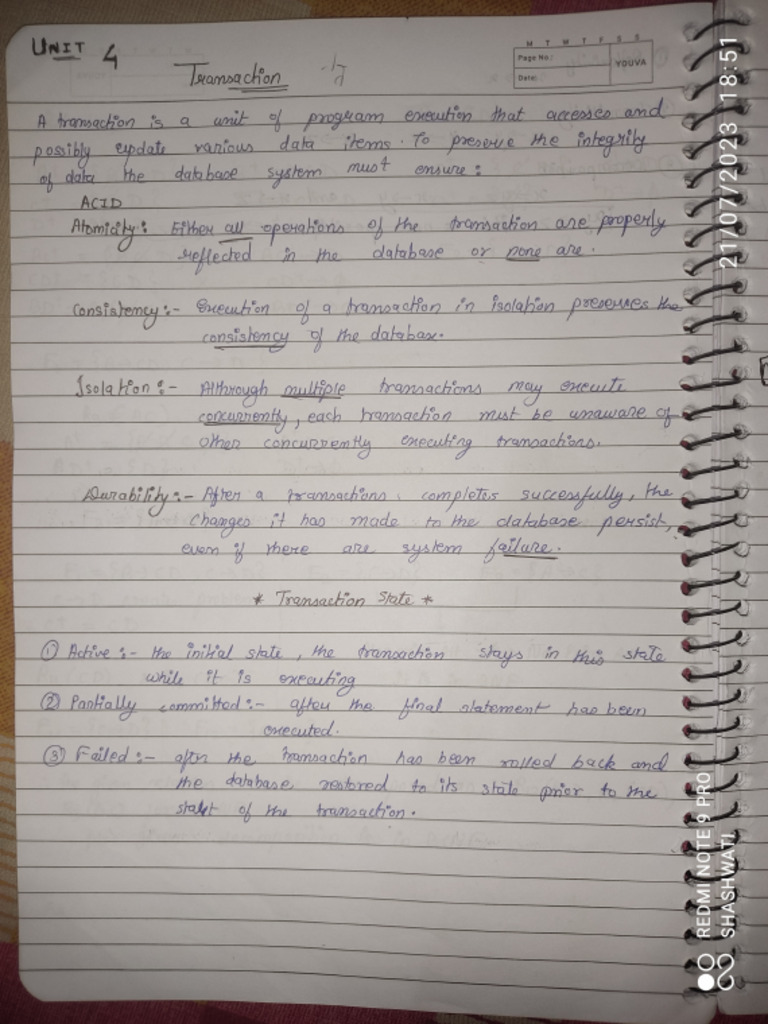 UNIT 4
M T W T F S S
Page No.:
YOUVA
Date:
Transaction
A transaction is a unit of program execution that accesses and
possibly update various data items. To preserve the integrity
of data the database system must ensure:
ACID
Atomicity: Either all operations of the transaction are properly
reflected in the database or none are.
Consistency:- execution of a transaction in isolation preserves the
consistency of the database.
Isolation:- Althrough multiple transactions may execute
concurrently, each transaction must be unaware of
other concurrently executing transactions.
Durability:- After a transactions completes successfully, the
changes it has made to the database persist,
even if there are system failure.
* Transaction State *
① Active:- the initial state, the transaction stays in this state
while it is executing
② Partially committed:- after the final statement has been
executed.
③ Failed:- after the transaction has been rolled back and
the database restored to its state prior to the
start of the transaction.
21/07/2023 18:51
REDMI NOTE 9 PRO
SHASHWATI